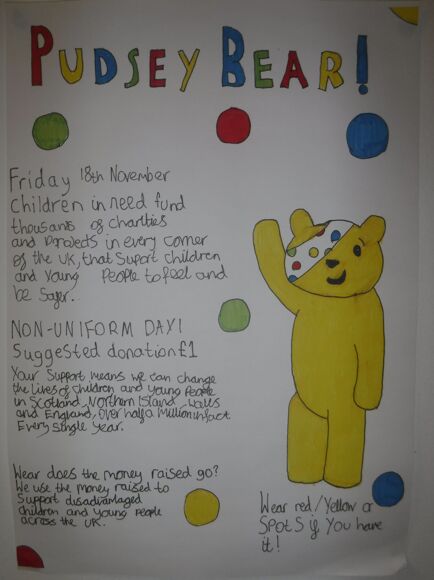 PUDSEY BEAR!
Friday 18th November
Children in need fund
thousands of charities
and projects in every corner
of the UK, that Suport children
and Young People to feel and
be Safer.
NON-UNIFORM DAY!
Suggested donation £1
Your Support means we can change
the lives of Children and Young People
in Scotland, Northern Island, Walls
and England, over half a Million in fact
Every Single Year.
Wear does the money raised go?
We use the money raised to
Support disadvantaged
children and Young People
across the UK.
Wear red/Yellow or
SPotS if You have
it!